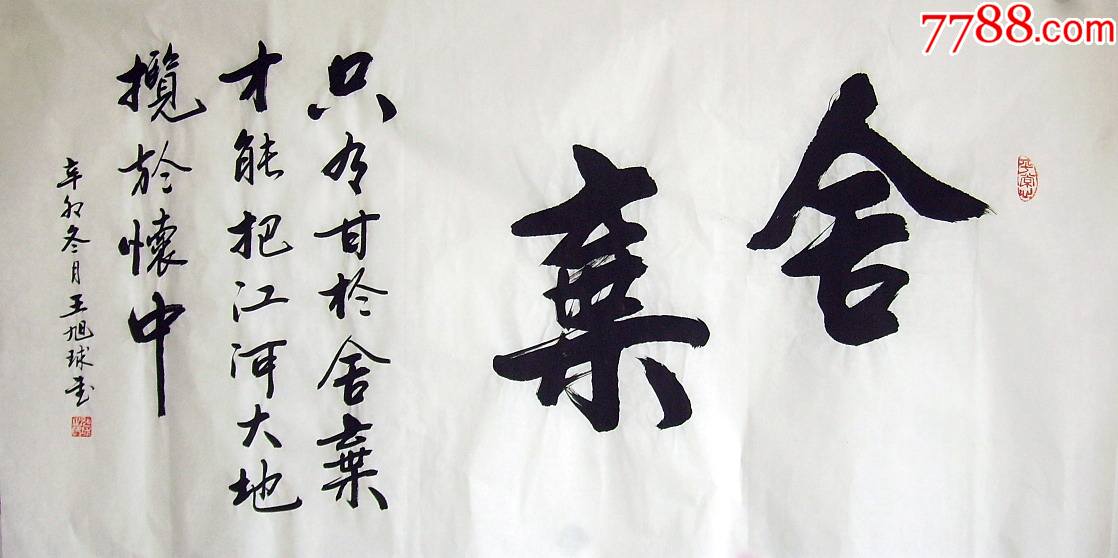 7788.com
舍棄
只有甘於舍棄
才能把江河大地
攬於懷中
辛卯冬月王旭球書